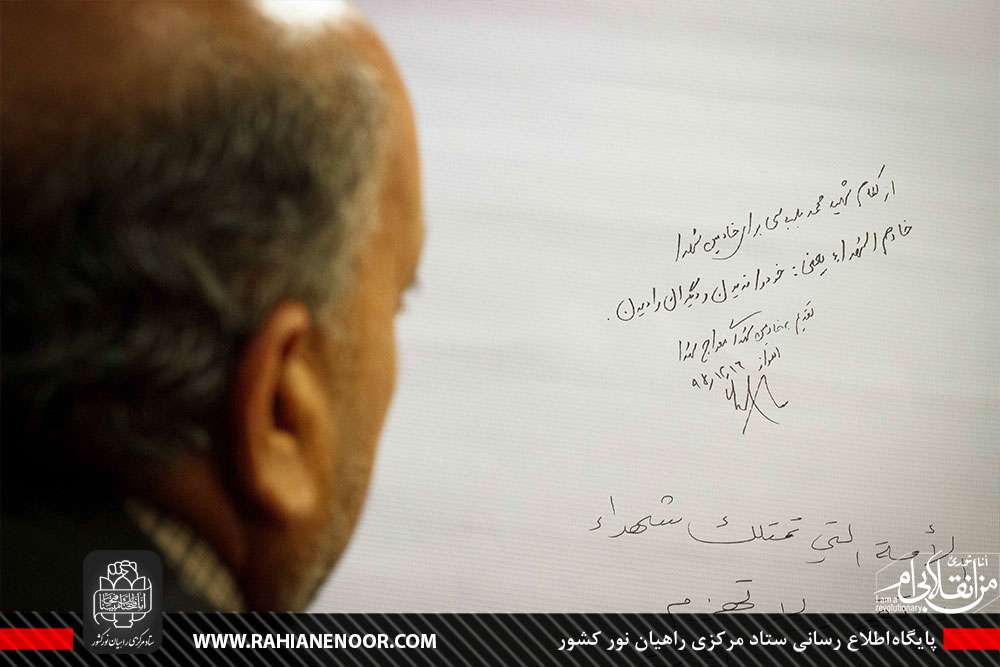 از کلام شهید محمد بلباسی برای خادمین شهدا
خادم الشهداء یعنی: خود را ندیدن و دیگران را دیدن.
تقدیم به خادمین شهدا معراج شهدا
اهواز ۹۵/۱۲/۱۶
الأمة التي تمتلك شهداء
لا تهزم
أنا ثوري
من انقلابی ام
I am a
revolutionary
ستاد مرکزی راهیان نور کشور
WWW.RAHIANENOOR.COM
پایگاه اطلاع رسانی ستاد مرکزی راهیان نور کشور